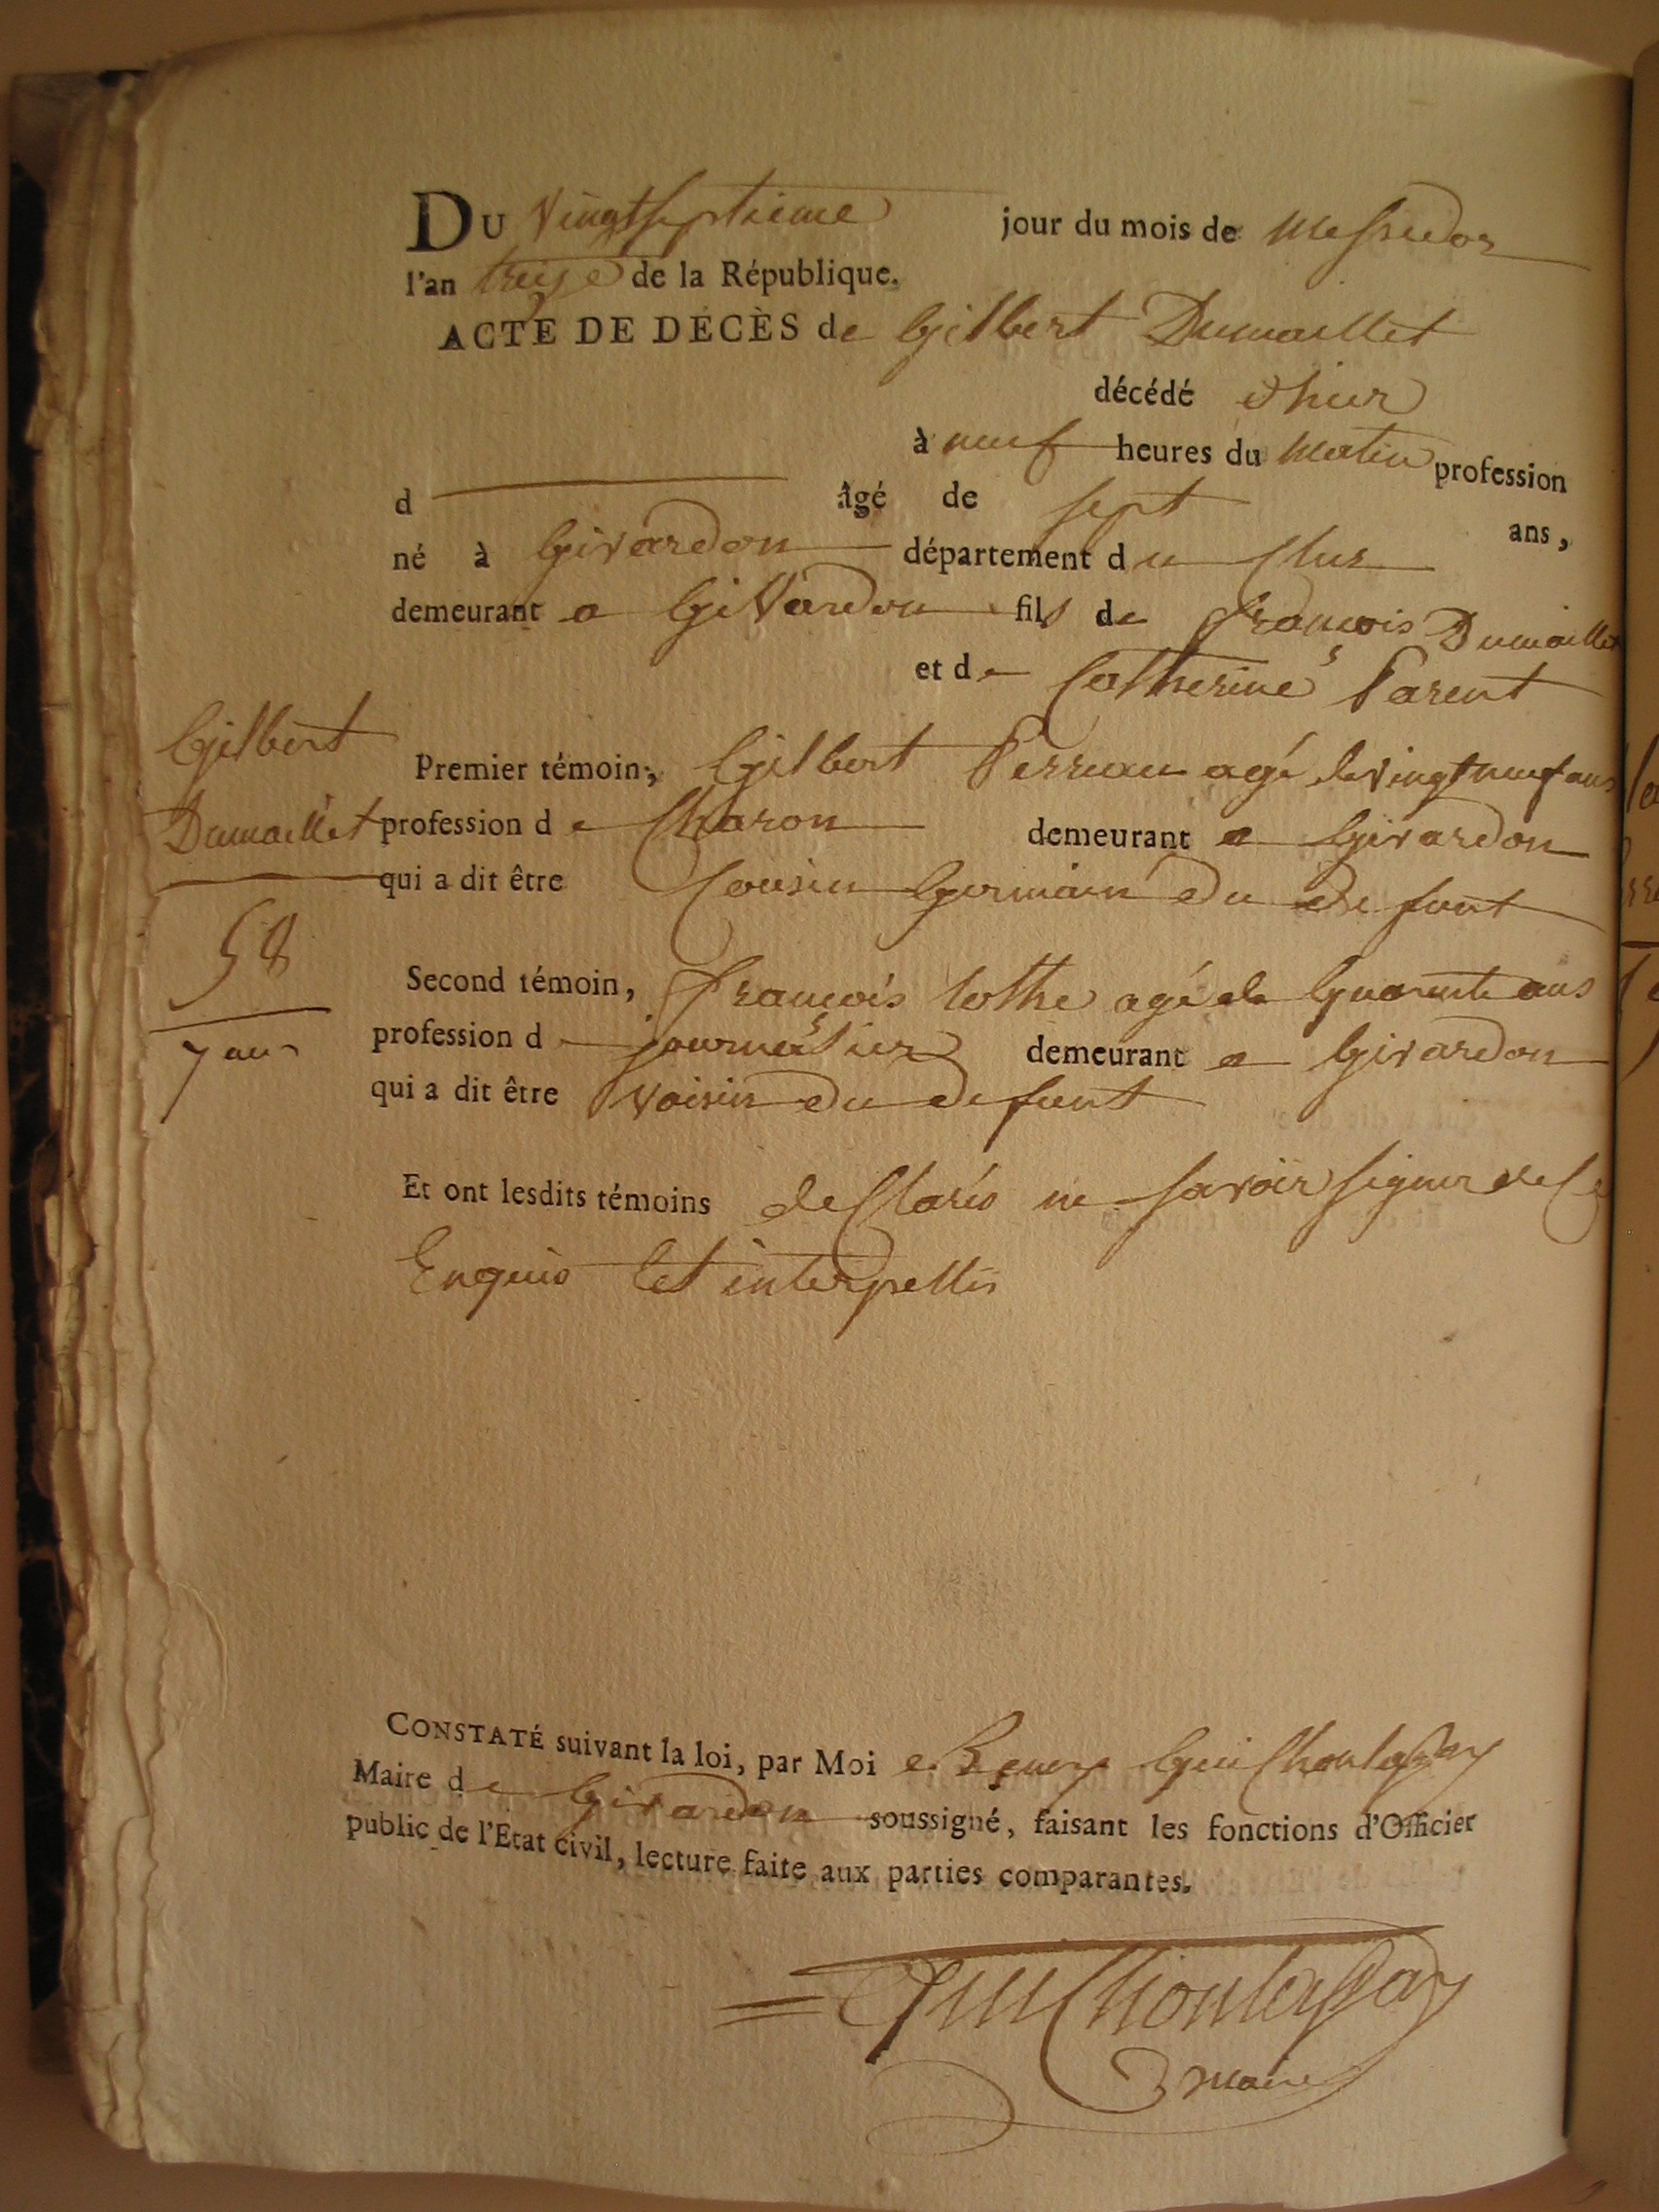 DU vingtseptieme jour du mois de Messidor
l'an treize de la République.
ACTE DE DÉCÈS de Gilbert Dumaillet
décédé d'hier
à neuf heures du Matin profession
d âgé de sept ans,
né à Givardon département du Cher
demeurant a Givardon fils de françois Dumaillet
et de Catherine Parent
Gilbert
Dumaillet
58
7 ans
Premier témoin, Gilbert Perreau agé de vingt neuf ans
profession de Charon demeurant a Givardon
qui a dit être Cousin Germain du defunt
Second témoin, françois lothe agé de Quarente ans
profession de journalier demeurant a Givardon
qui a dit être Voisin du defunt
Et ont lesdits témoins de Clarés ne savoir signer de Ce
Enquis Et interpellés
CONSTATÉ suivant la loi, par Moi
Maire de Givardon soussigné, faisant les fonctions d'Officier
public de l'Etat civil, lecture faite aux parties comparantes.
maire